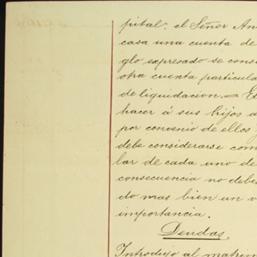 pital. el Señor An
casa una cuenta de
glo expresado se cons
otra cuenta particula
de liquidacion. = E
hacer á sus hijos a
por convenio de ellos
debe considerarse com
lar de cada uno de
consecuencia no debe
do mas bien un v
importancia.
Deudas.
Introdujo al matrim